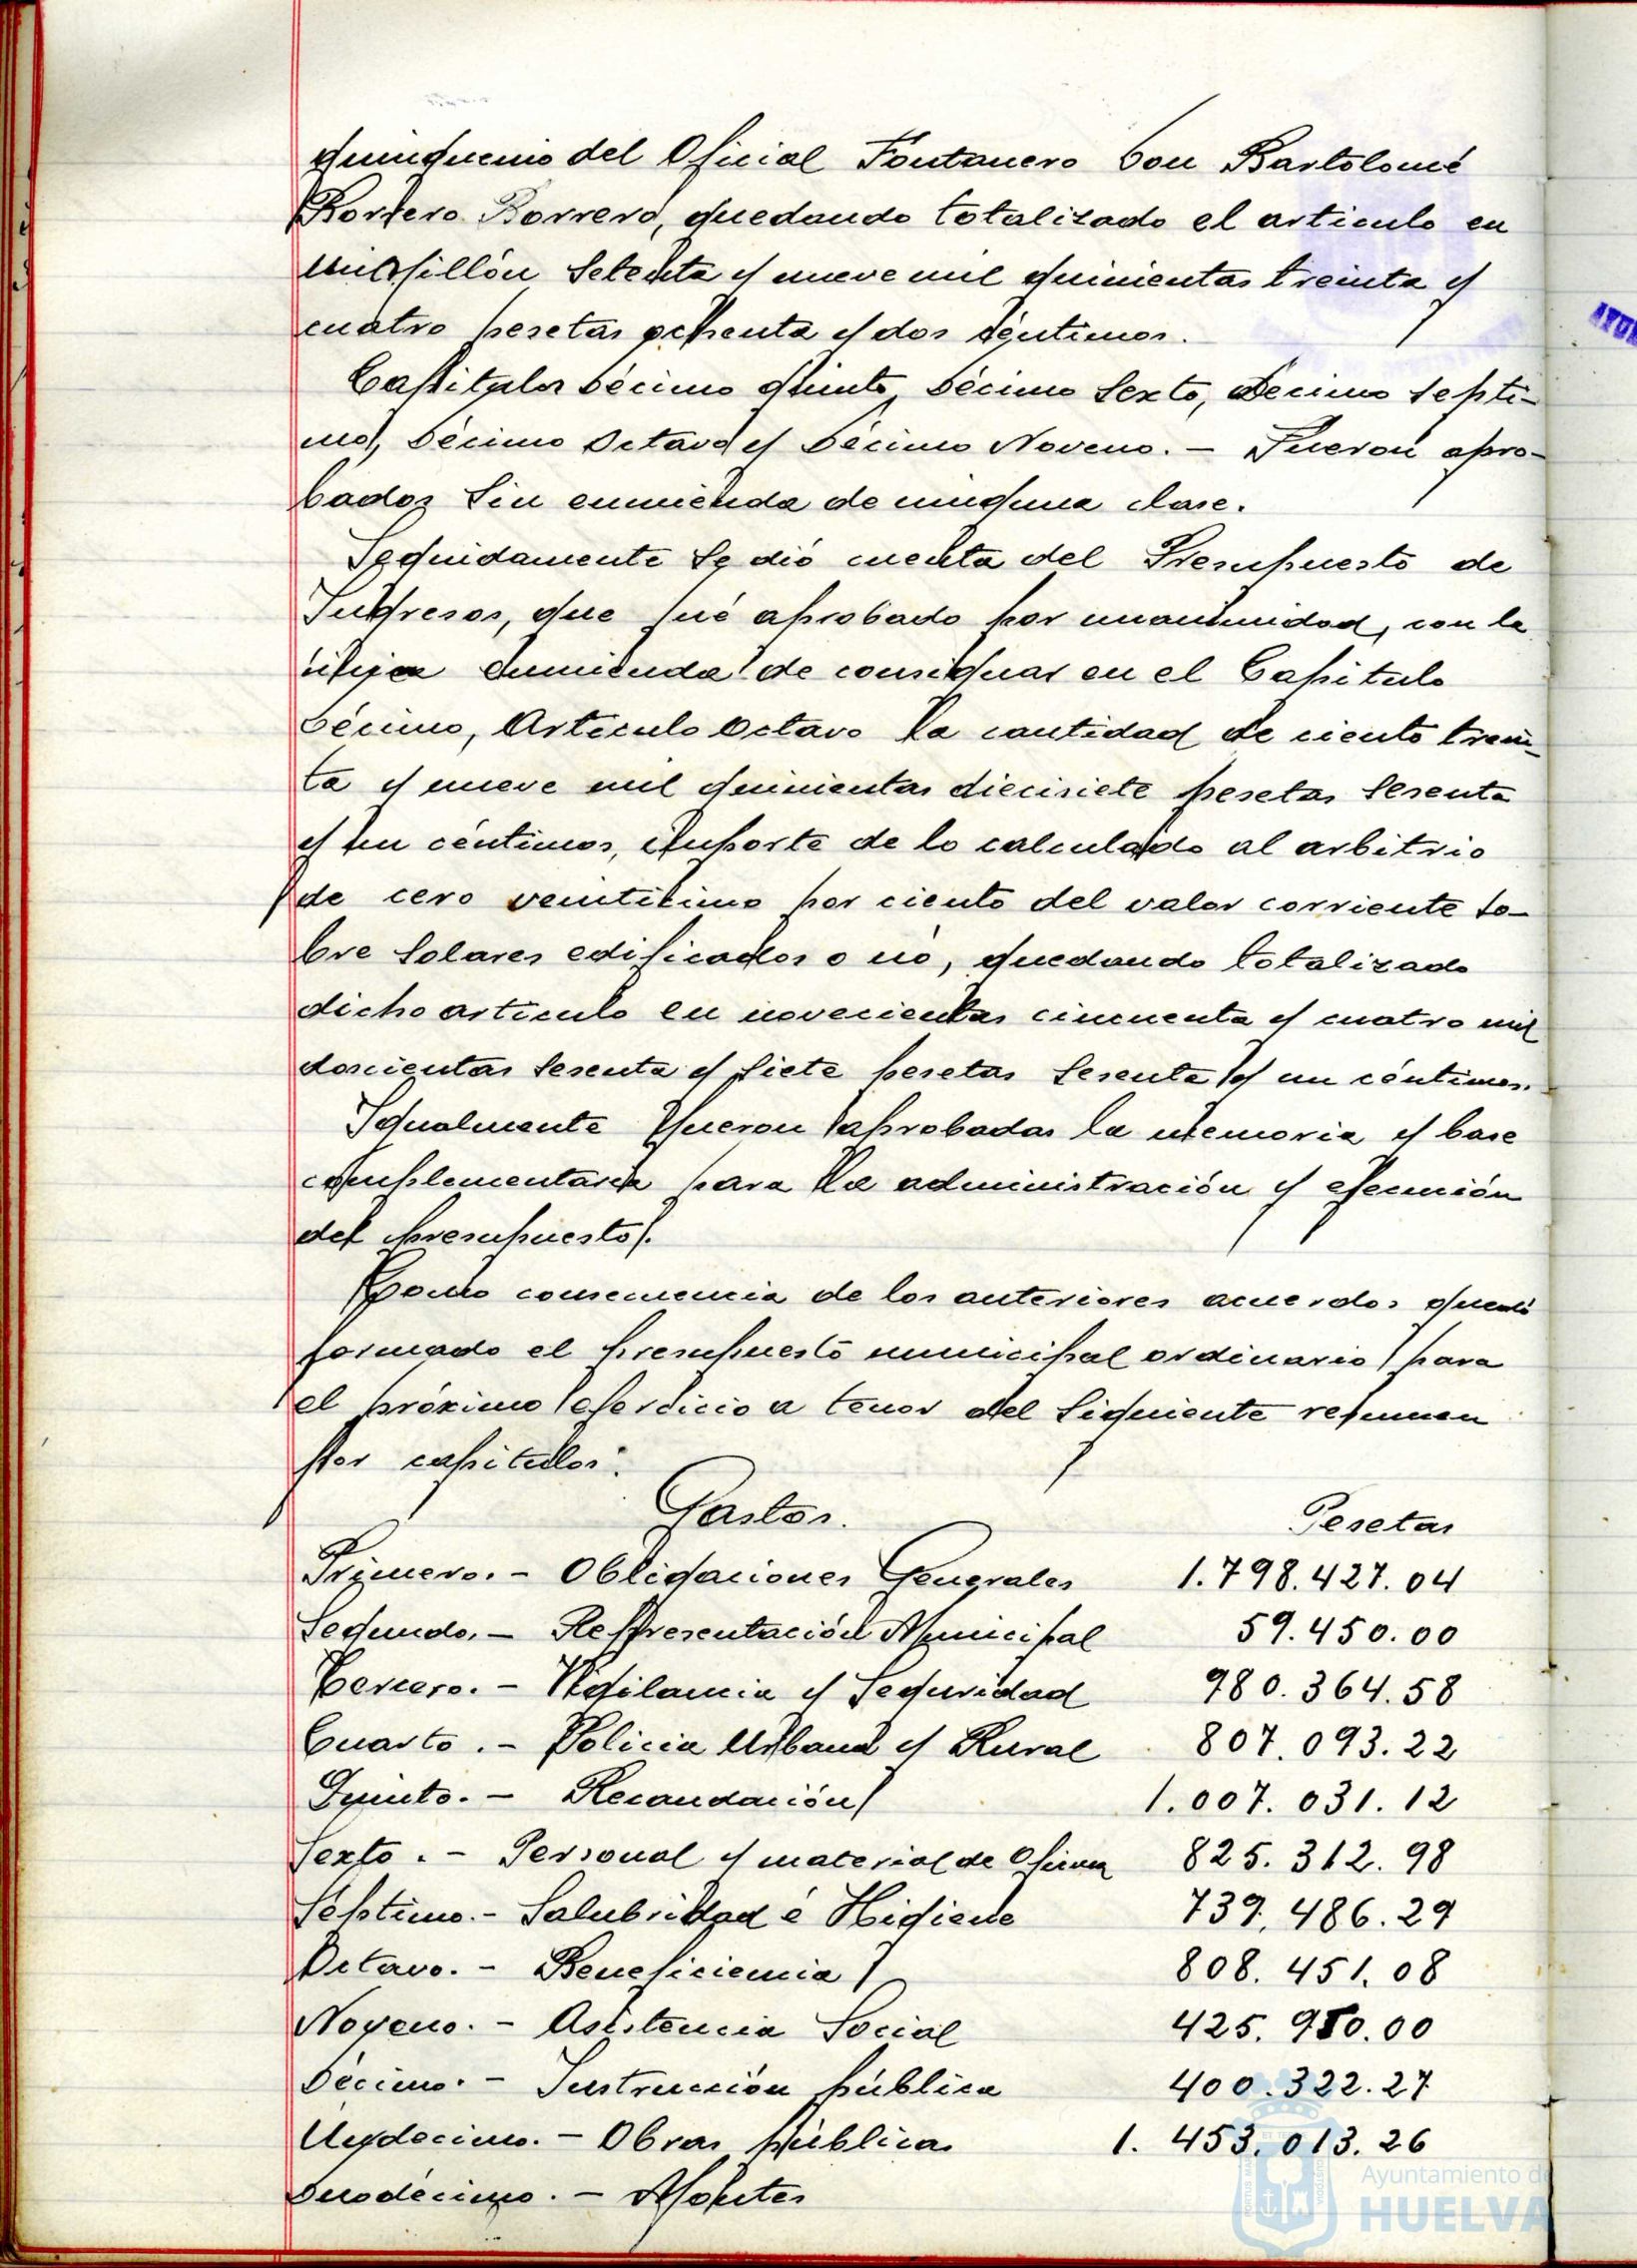 quinquenio del Oficial Fontanero Don Bartolomé
Borrero, quedando totalizado el articulo en
un millón setenta y nueve mil quinientas treinta y
cuatro pesetas ochenta y dos céntimos.
Capítulos Décimo Quinto, Décimo Sexto, Décimo Septi-
mo, Décimo Octavo y Décimo Noveno. — Fueron apro-
bados sin enmienda de ninguna clase.
Seguidamente se dió cuenta del Presupuesto de
Ingresos, que fué aprobado por unanimidad, con la
única enmienda de consignar en el Capitulo
Décimo, Artículo Octavo la cantidad de ciento trein-
ta y nueve mil quinientas diecisiete pesetas sesenta
y un céntimos, importe de lo calculado al arbitrio
de cero veintésimo por ciento del valor corriente so-
bre solares edificados o nó, quedando totalizado
dicho artículo en novecientas cincuenta y cuatro mil
doscientas sesenta y siete pesetas sesenta y un céntimos.
Igualmente fueron aprobadas la memoria y base
complementaria para la administración y ejecución
del presupuesto.
Como consecuencia de los anteriores acuerdos quedó
formado el presupuesto municipal ordinario para
el próximo ejercicio a tenor del siguiente resumen
por capitulos:
Gastos. Pesetas
Primero. - Obligaciones Generales 1.798.427.04
Segundo. - Representación Municipal 59.450.00
Tercero. - Vigilancia y Seguridad 980.364.58
Cuarto. - Policia Urbana y Rural 807.093.22
Quinto. - Recaudación 1.007.031.12
Sexto. - Personal y material de Oficina 825.312.98
Séptimo. - Salubridad é Higiene 739.486.29
Octavo. - Beneficiencia 808.451.08
Noveno. - Asistencia Social 425.950.00
Décimo. - Instrucción pública 400.322.27
Undecimo. - Obras públicas 1.453.013.26
Duodécimo. - Montes
Ayuntamiento de
HUELVA